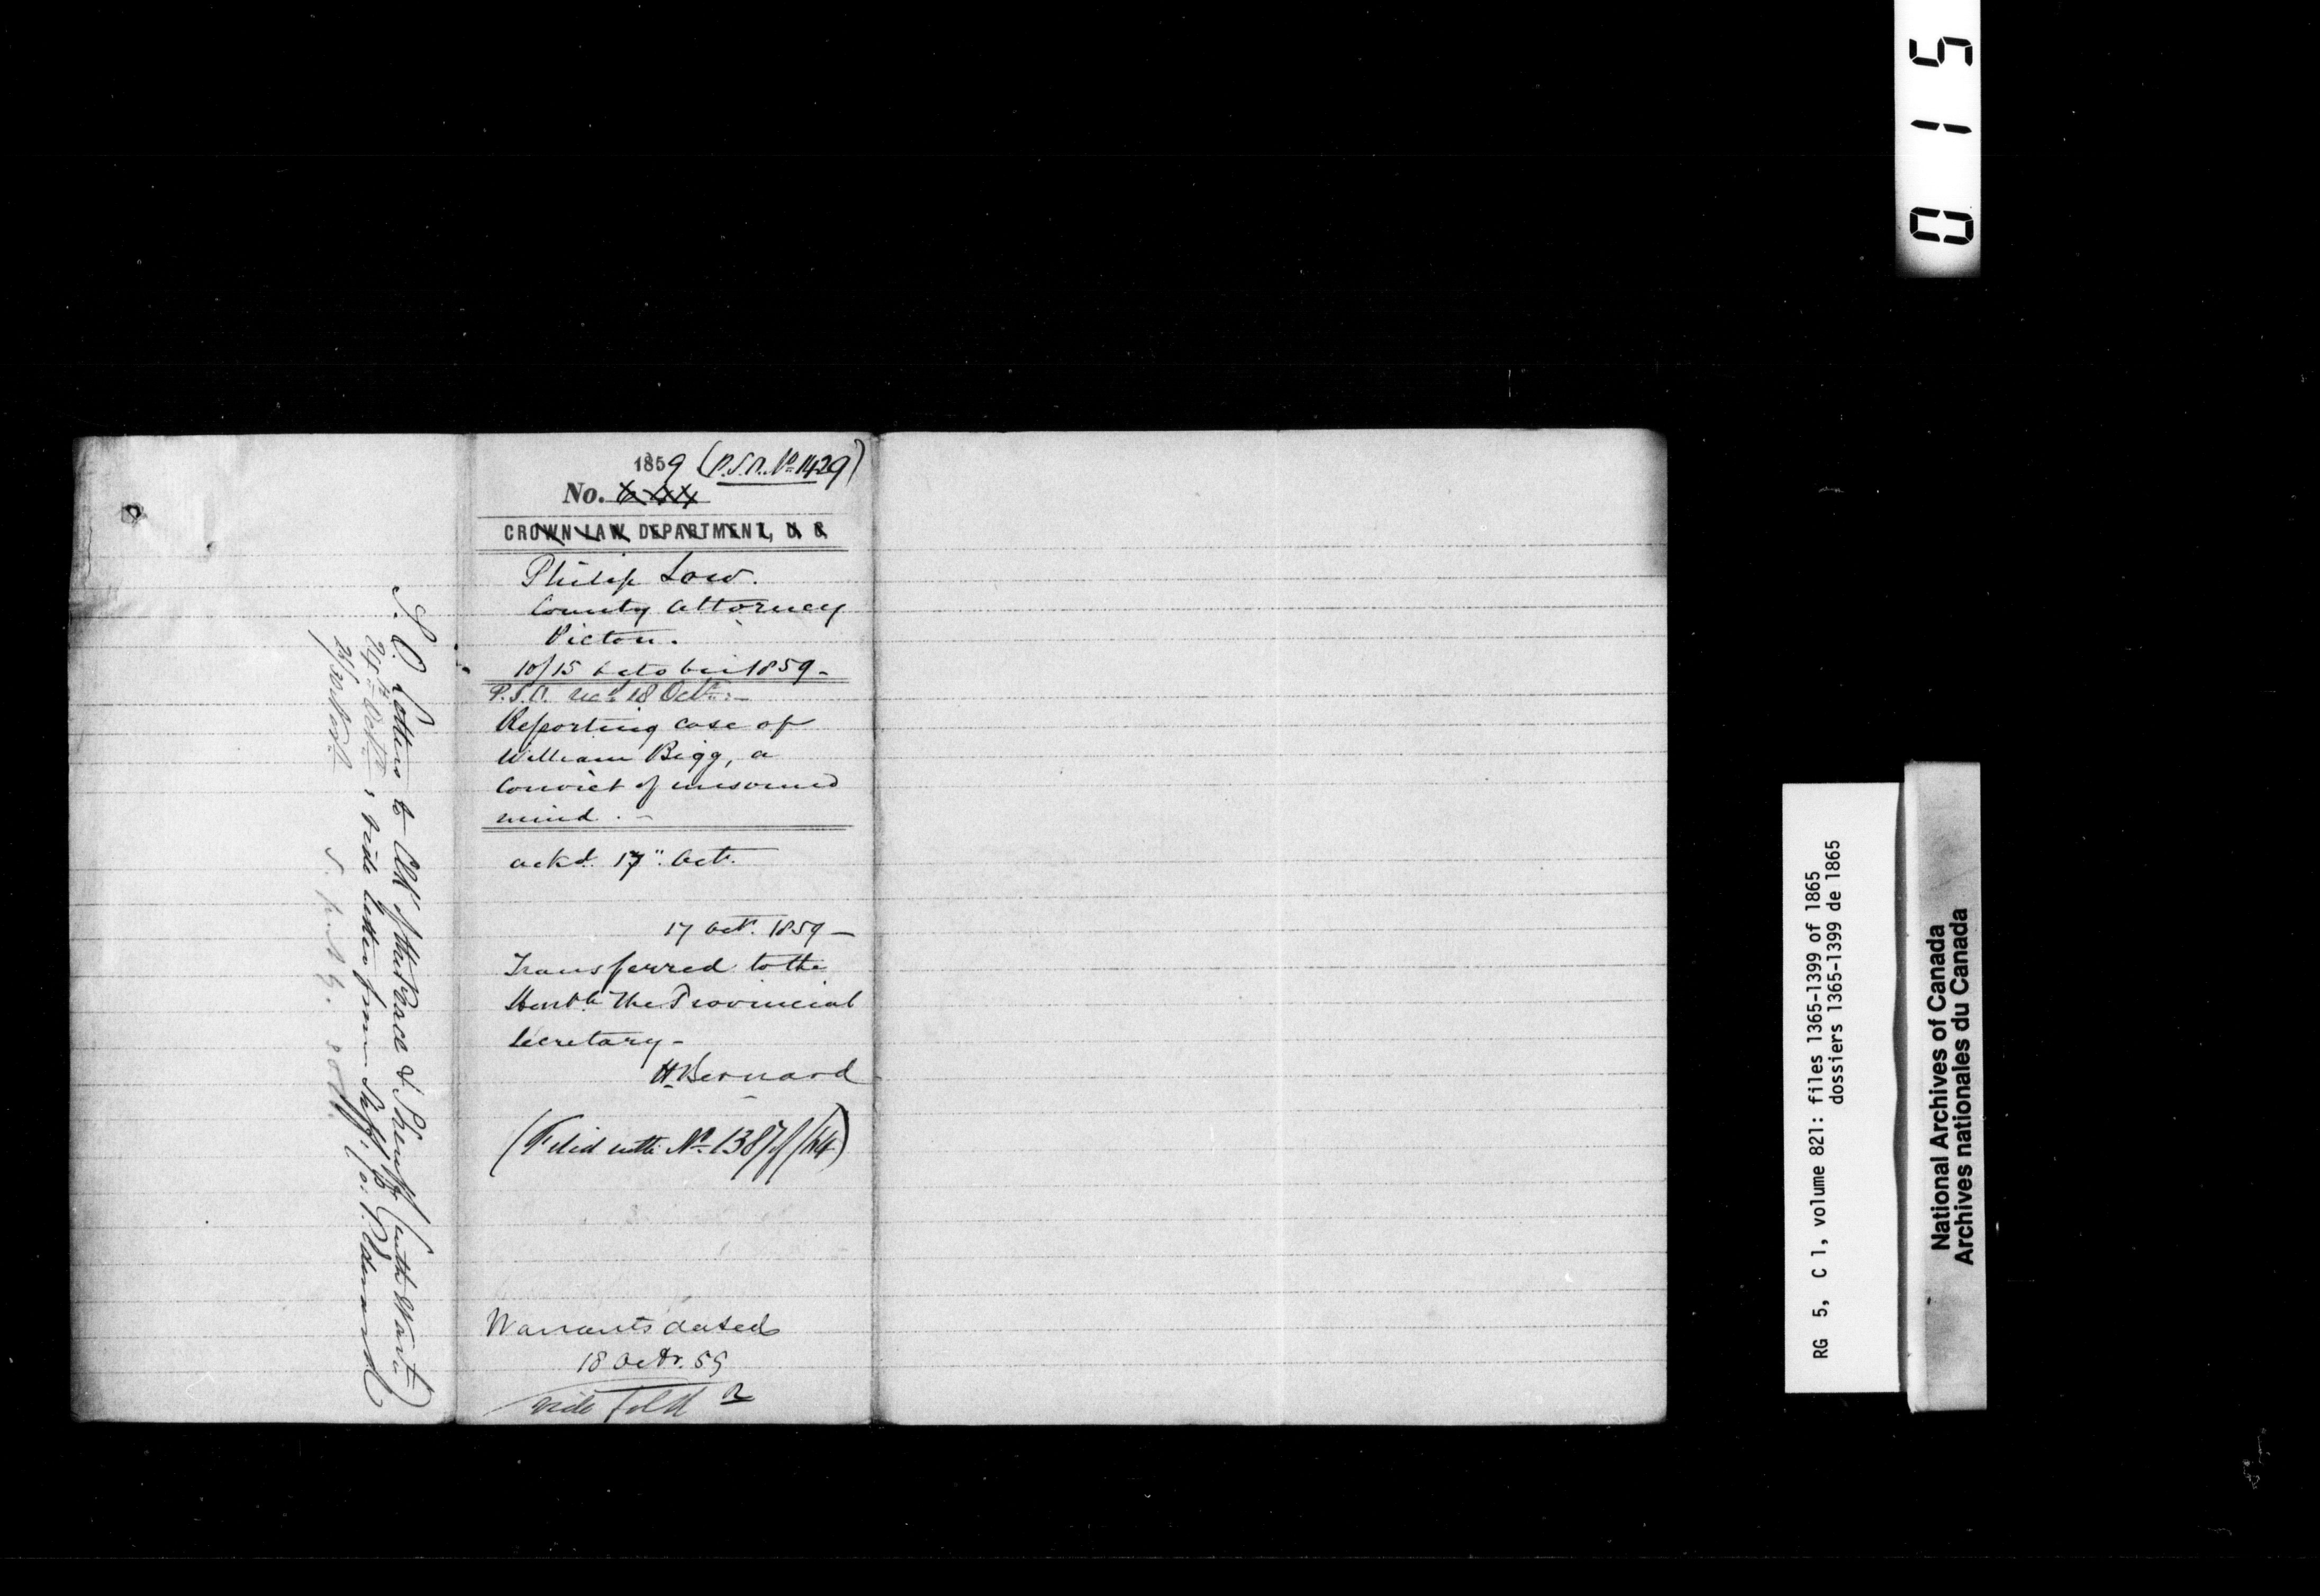 1859 (P.S.O. No 1429)
No.
CROWN LAW DEPARTMENT, U C
Philip Low.
County Attorney
Picton.
10/15 October 1859 -
P.S.O. recd 18 Octr. -
Reporting case of
William Bigg, a
Convict of unsound
mind. -
ackd. 17" Oct.
17 Oct. 1859 -
Transferred to the
Honble the Provincial
Secretary -
H. Bernard
(Filed with No 1387 of /64)
Warrants dated
18 Octr. 59
vide fold 2
S. O. Letters to Clk of the Peace & Sheriff (with Warts.)
vide letter from
015
RG 5, C 1, volume 821: files 1365-1399 of 1865
dossiers 1365-1399 de 1865
National Archives of Canada
Archives nationales du Canada